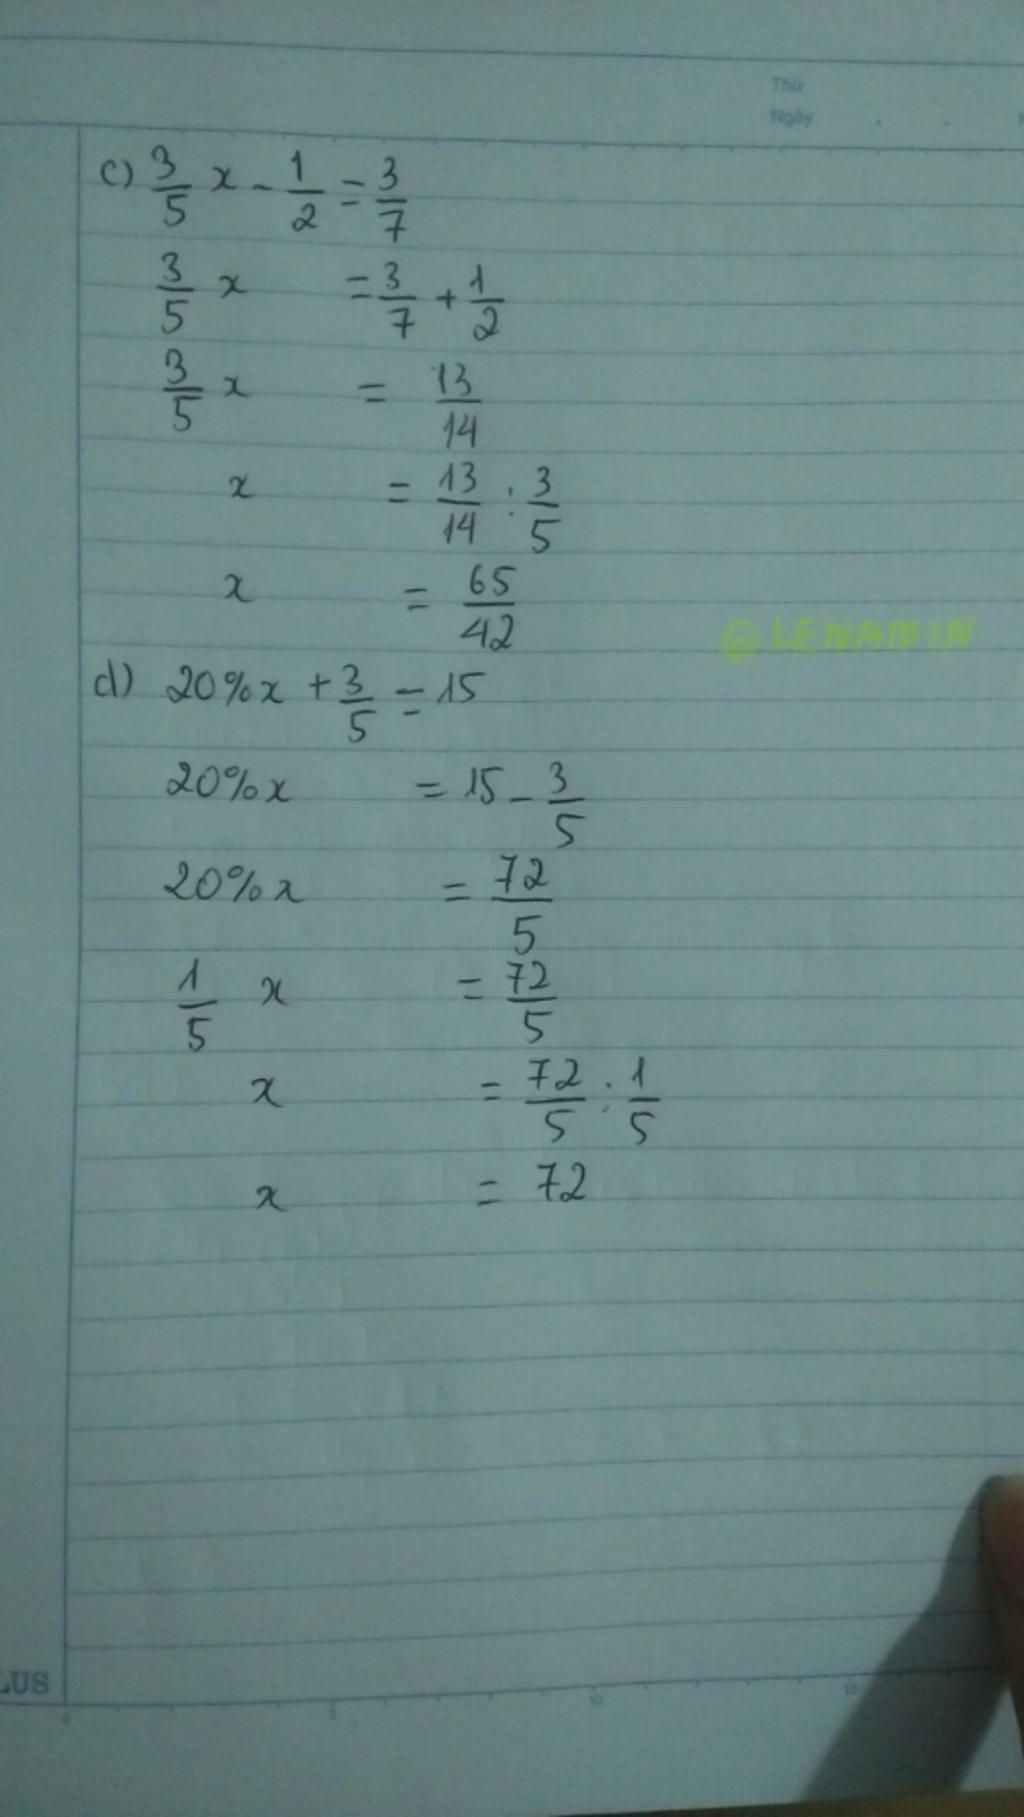 Thứ
Ngày
c) 3/5 x - 1/2 = 3/7
3/5 x = 3/7 + 1/2
3/5 x = 13/14
x = 13/14 : 3/5
x = 65/42
@LENAMIN
d) 20%x + 3/5 = 15
20%x = 15 - 3/5
20%x = 72/5
1/5 x = 72/5
x = 72/5 : 1/5
x = 72
LUS
0 5 10 15